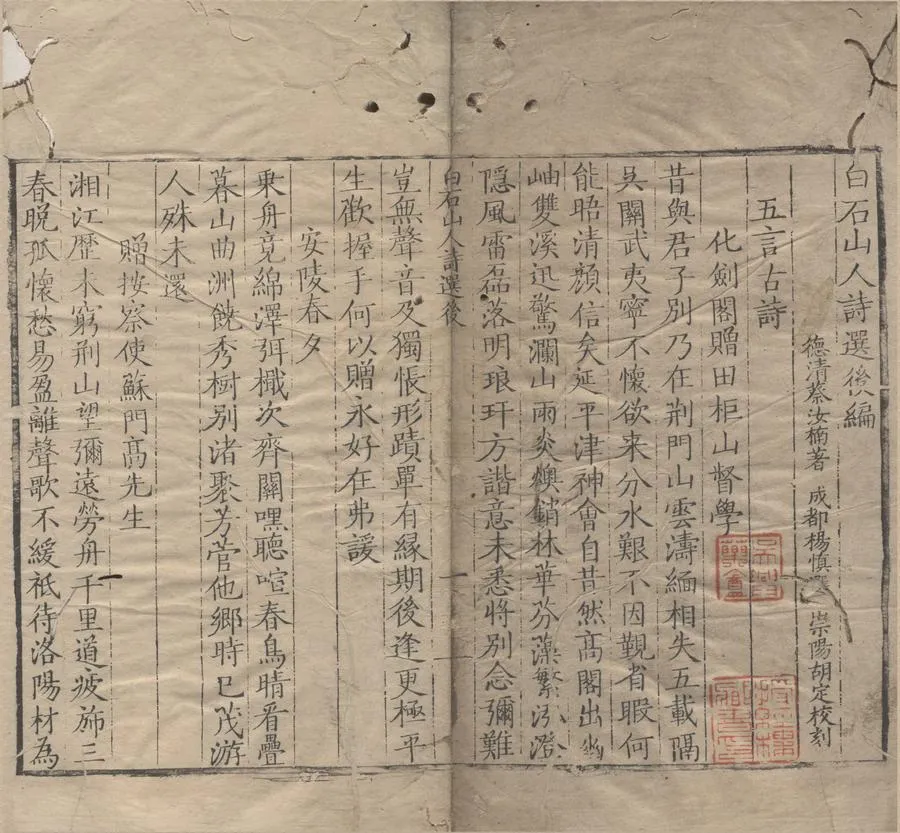 白石山人詩選後編
德清蔡汝楠著 成都楊慎選 崇陽胡定校刻
五言古詩
化劍閣贈田柜山督學
昔與君子別乃在荆門山雲濤緬相失五載隔
吳關武夷寧不懷欲来分水艱不因覲省暇何
能晤清顔信矣延平津神會自昔然高閣出幽
岫雙溪迅驚瀾山雨炎燠銷林華芬藻繁泓澄
隱風雷磊落明琅玕方諧意未悉將别念彌難
白石山人詩選後 一
豈無聲音及獨悵形蹟單有緣期後逢更極平
生歡握手何以贈永好在弗諼
安陵春夕
乗舟竟綿澤弭檝次齊關嘿聽喧春鳥晴看疊
暮山曲洲饒秀樹別渚聚芳菅他鄉時已茂游
人殊未還
贈按察使蘇門髙先生
湘江歷未窮荆山望彌遠勞舟千里道疲斾三
春晚孤懷愁易盈離聲歌不緩祗待洛陽材為